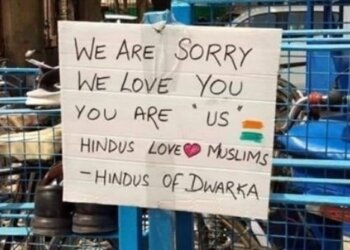 WE ARE SORRY
WE LOVE YOU
YOU ARE "US"
HINDUS LOVE ❤ MUSLIMS
- HINDUS OF DWARKA